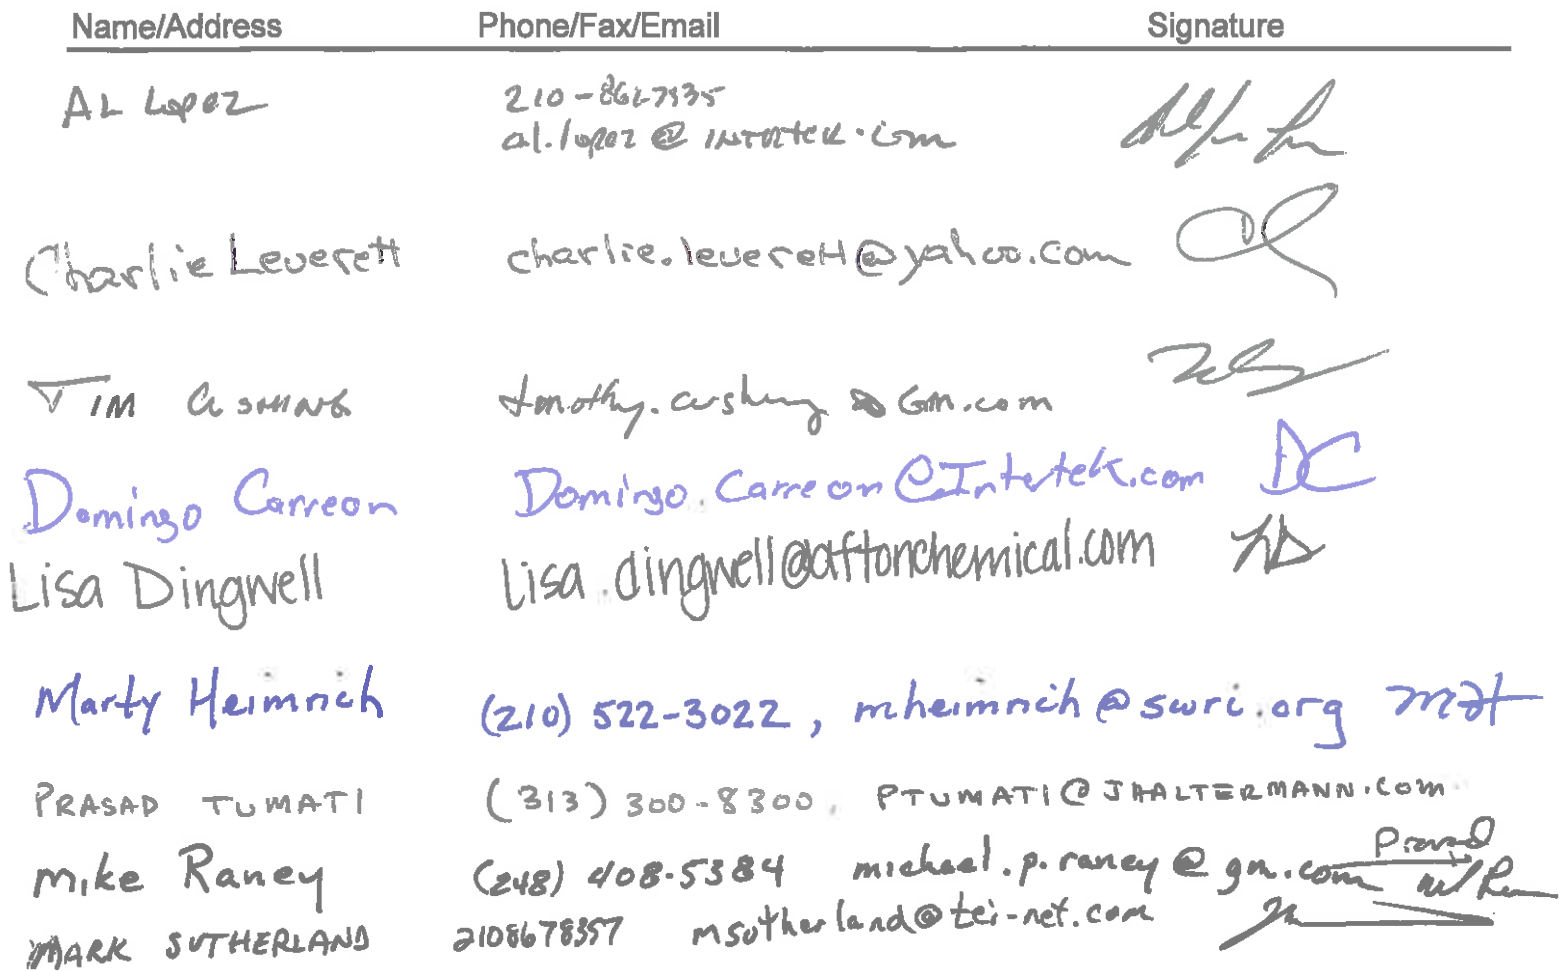 Name/Address Phone/Fax/Email Signature
AL Lopez 210-862-7935
al.lopez@INTERTEK.com
Charlie Leverett charlie.leverett@yahoo.com
TIM CUSHING timothy.cushing @ GM.com
Domingo Carreon Domingo.Carreon@Intertek.com DC
Lisa Dingwell Lisa.dingwell@aftonchemical.com LD
Marty Heimrich (210) 522-3022, mheimrich@swri.org MH
PRASAD TUMATI (313) 300-8300, PTUMATI@JHALTERMANN.COM
Prasad
Mike Raney (248) 408-5384 michael.p.raney@gm.com
MARK SUTHERLAND 2108678357 msutherland@tei-net.com